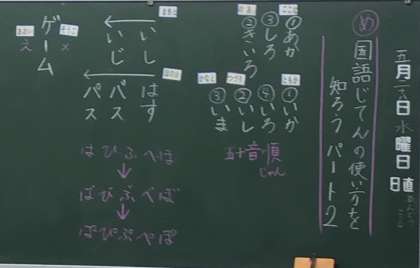 五月二八日水曜日
日直
め
国語じてんの使い方を
知ろう パート2
①あか
③しろ
②きいろ
①いか
④いろ
②いし
③いま
五十音順
じゅん
いし
いじ
はす
バス
パス
はひふへほ
ばびぶべぼ
ぱぴぷぺぽ
ゲーム
え